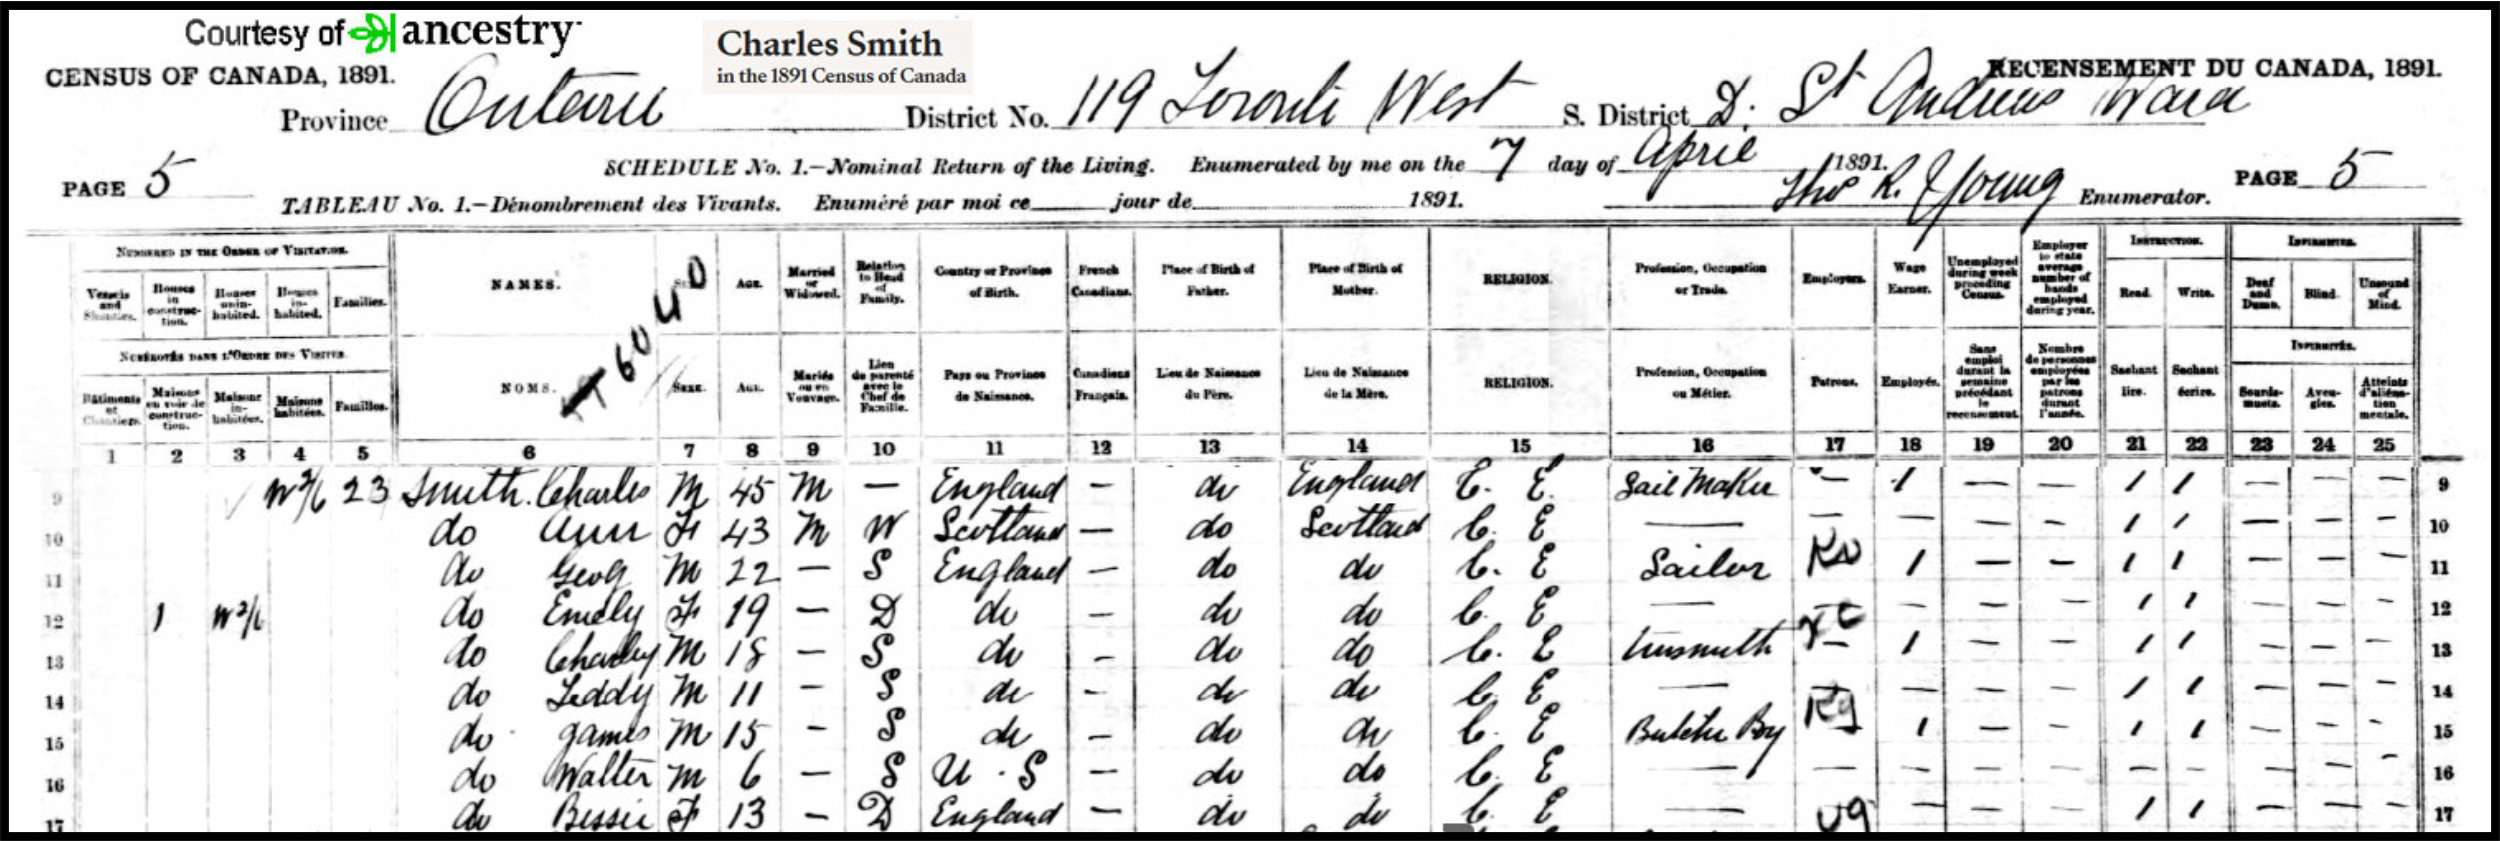 Courtesy of ancestry
Charles Smith
in the 1891 Census of Canada
CENSUS OF CANADA, 1891.
RECENSEMENT DU CANADA, 1891.
Province Ontario District No. 119 Toronto West S. District D. St Andrews Ward
PAGE 5 SCHEDULE No. 1.—Nominal Return of the Living. Enumerated by me on the 7 day of April 1891. PAGE 5
TABLEAU No. 1.—Dénombrement des Vivants. Enuméré par moi ce jour de 1891. Thos R. Young Enumerator.
NUMBERED IN THE ORDER OF VISITATION.
Vessels and Shanties. Houses in construction. Houses uninhabited. Houses inhabited. Families. NAMES. SEX. AGE. Married or Widowed. Relation to Head of Family. Country or Province of Birth. French Canadians. Place of Birth of Father. Place of Birth of Mother. RELIGION. Profession, Occupation or Trade. Employers. Wage Earner. Unemployed during week preceding Census. Employer to state average number of hands employed during year. INSTRUCTION. Read. Write. INFIRMITIES. Deaf and Dumb. Blind. Unsound of Mind.
6040
NUMÉROTÉS DANS L'ORDRE DES VISITES.
Bâtiments et Chantiers. Maisons en voie de construction. Maisons inhabitées. Maisons habitées. Familles. NOMS. SEXE. AGE. Mariés ou en Veuvage. Lien de parenté avec le Chef de Famille. Pays ou Province de Naissance. Canadiens Français. Lieu de Naissance du Père. Lieu de Naissance de la Mère. RELIGION. Profession, Occupation ou Métier. Patrons. Employés. Sans emploi durant la semaine précédant le recensement. Nombre de personnes employées par les patrons durant l'année. Sachant lire. Sachant écrire. INFIRMITÉS. Sourds-muets. Aveugles. Atteints d'aliénation mentale.
1 2 3 4 5 6 7 8 9 10 11 12 13 14 15 16 17 18 19 20 21 22 23 24 25
9 W2/6 23 Smith. Charles M 45 M — England — do England C. E. Sail Maker — 1 — — 1 1 — — — 9
10 do Ann F 43 M W Scotland — do Scotland C. E — — — — — 1 1 — — — 10
11 do Geog M 22 — S England — do do C. E Sailor 1 — — 1 1 — — — 11
12 1 W2/6 do Emely F 19 — D do — do do C. E — — — — 1 1 — — — 12
13 do Charley M 18 — S do — do do C. E Tinsmith — 1 — — 1 1 — — — 13
14 do Teddy M 11 — S do — do do C. E — — — — — 1 1 — — — 14
15 do James M 15 — S do — do do C. E Butcher By 1 — — 1 1 — — — 15
16 do Walter M 6 — S U. S — do do C. E — — — — — — — — — — 16
17 do Bessie F 13 — D England — do do C. E — — — — 1 1 — — — 17